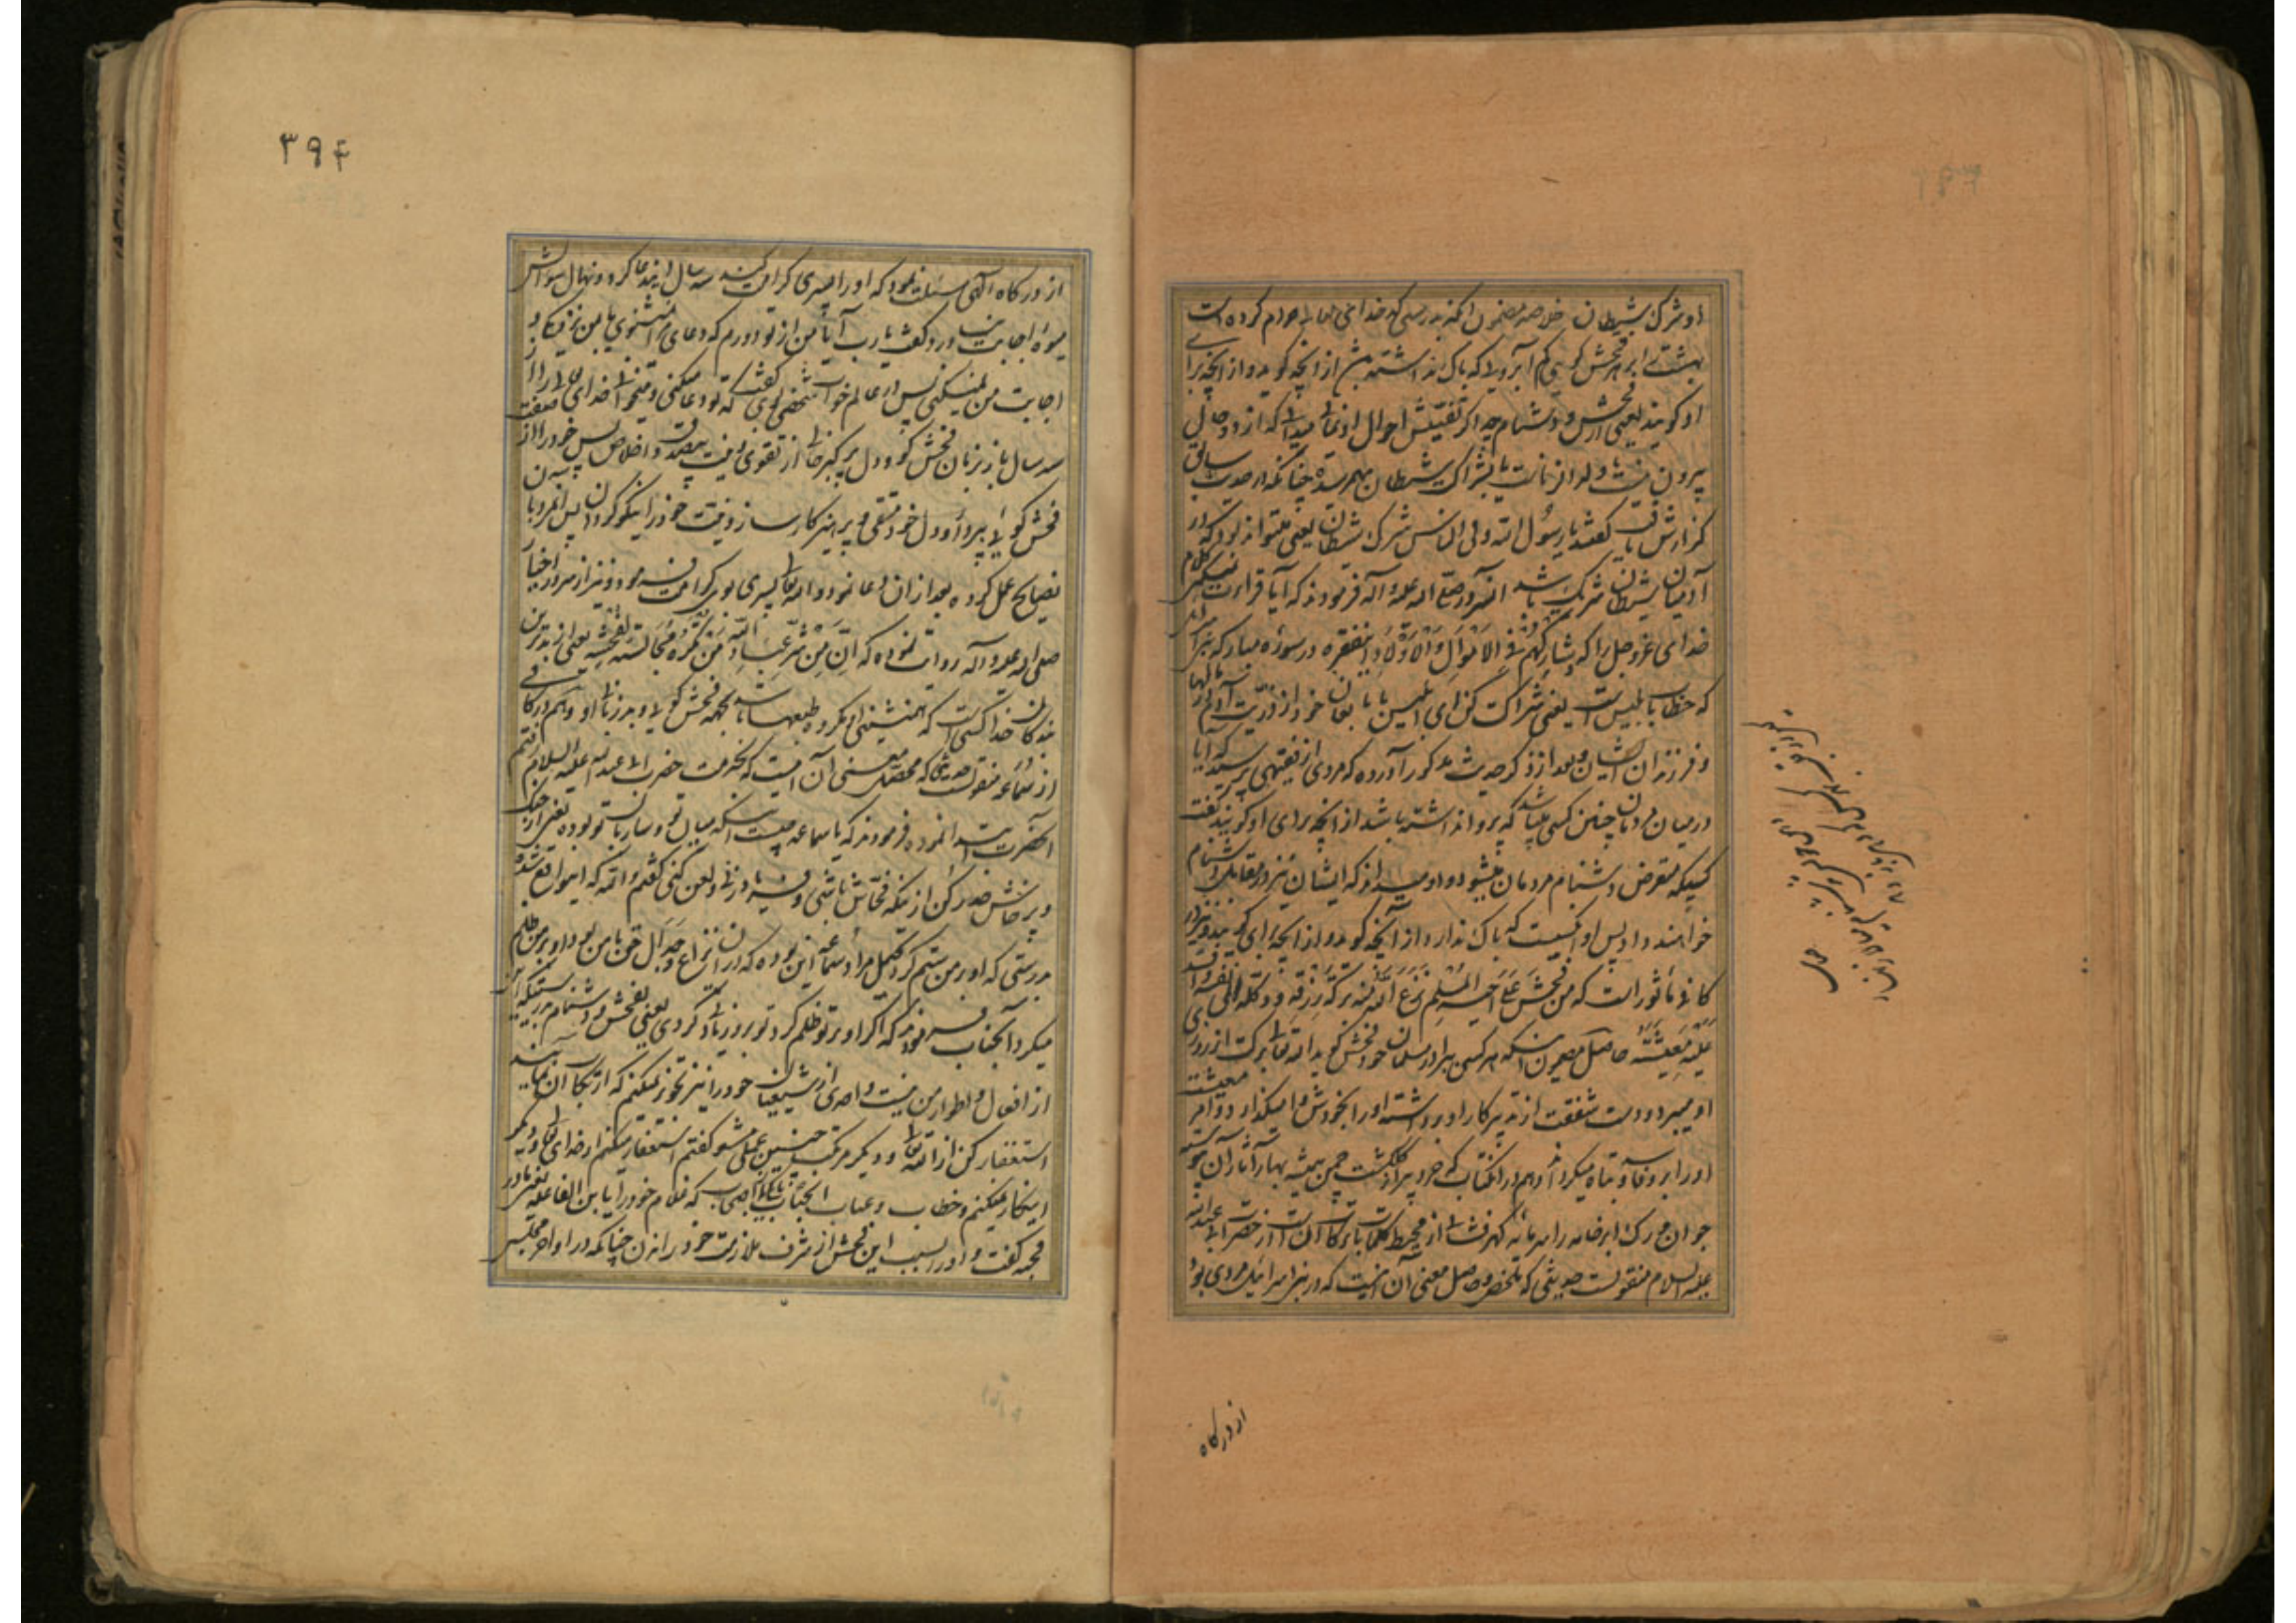 او شرک شیطان خلاصه مضمون آنکه بدرستی که خدای تعالی حرام کرده است
بهشت را بر هر فحش گوی کم آبرو یی که باک نداشته باشد از آنچه گوید و از آنچه برای
او گویند یعنی از فحش و دشنام چه اگر تفتیش احوال او نمائی میدانی که از دو حال
بیرون نیست یا ولد الزناست یا بشراکت شیطان بهمرسیده چنانکه در صورت سابق
گزارش یافت گفتند یا رسول الله و فی الناس شرک شیطان یعنی میتواند بود که در
آدمیان شیطان شریک باشد آنسرور صلی الله علیه و آله فرمودند که آیا قراءت نمیکنی کلام
خدای عزوجل را که و شارکهم فی الاموال و الاولاد این فقره در سوره مبارکه
که خطاب بابلیس است یعنی شراکت کن ای ابلیس با تابعان خود از ذریت آدم در مالها
و فرزندان ایشان و بعد از ذکر حدیث مذکور آورده که مردی از فقیهی پرسید که آیا
در میان مردمان چنین کسی میباشد که پروا نداشته باشد از آنچه برای او گویند گفت
کسیکه متعرض دشنام مردمان میشود و او میداند که ایشان نیز در مقابل دشنام
خواهند داد پس او کسیست که باک ندارد از آنچه گوید و از آنچه برای او گویند و نیز در
کافی ماثور است که من فحش علی اخیه المسلم نزع الله منه برکة رزقه و وکله الی نفسه و افسد
علیه معیشته حاصل مضمون آنکه هر کس ببرادر مسلمان خود فحش گوید الله تعالی برکت از روزی
او میبرد و دست شفقت از تدبیر کار او برداشته او را بخودش وامیگذارد و امر معیشت
او را بر او فاسد و تباه میکرداند و هم در آن کتاب که خرد پیر از گلگشت چمن همیشه بهار آثار آن پیوسته
جوان و رگ ابر خامه را سرمایه گهرفشانی از محیط کلمات با برکات آنست از حضرت ابی عبدالله
علیه السلام منقولست حدیثی که ملخص و حاصل معنی آن اینست که در بنی اسرائیل مردی بود
از درگاه
۳۹۴
از درگاه آلهی مسئلت نمود که او را پسری کرامت کند سه سال این دعا کرد و نهال سؤالش
میوه اجابت نیاورد گفت یا رب آیا من از تو دورم که دعای مرا نمیشنوی یا بمن نزدیک و
اجابت من نمیکنی پس در عالم خواب شخصی بوی گفت که تو دعا میکنی و میخوانی خدای تعالی را از
سه سال باز بزبان فحش گو و دل پر کبر خالی از تقوی و نیت بیصدق و اخلاص پس خود را از
فحش گویی بیرون آور و دل خود متقی و پرهیزکار ساز و نیت خود را نیکو گردان پس آنمرد با
نصایح عمل کرده بعد از آن دعا نمود و الله تعالی پسری بوی کرامت فرمود و نیز از سرور اخیار
صلی الله علیه و آله روایت نموده که ان من شر عباد الله من تکره مجالسته لفحشه یعنی از بدترین
بندگان خدا کسی است که همنشینی او مکروه طبعها باشد بجهة فحش گویی و بد زبانی او و هم در کافی
از سماعه منقولست حدیثی که محصل معنی آن اینست که بخدمت حضرت ابی عبدالله علیه السلام رفتم
آنحضرت ابتدا نموده فرمودند که یا سماعه چیست اینکه میان تو و ساربان تو بوده یعنی از جنگ
و پرخاش حذر کن از اینکه فحاش باشی و فریاد زنی و لعن کنی گفتم والله که این واقع شده
بدرستی که او بر من ستم کرد گویا مراد سماعه این بوده که در آن نزاع و جدال حق با من بود و او بر من ظلم
میکرد آنجناب فرمودند که اگر او بر تو ظلم کرد تو بر او زیاد کردی یعنی بفحش و دشنام بدرستیکه این
از افعال و اطوار من نیست و احدی از شیعیان خود را نیز تجویز نمیکنم که ارتکاب آن نمایند
استغفار کن از الله تعالی و دیگر مرتکب چنین عملی مشو گفتم استغفار میکنم از خدای تعالی و دیگر
اینکار نمیکنم و خطاب و عتاب آنجناب باصحاب که غلام خود را یا بن الفاعله
گفت و او را بسبب این فحش از شرف ملازمت خود راندن چنانکه در اواخر مجلس